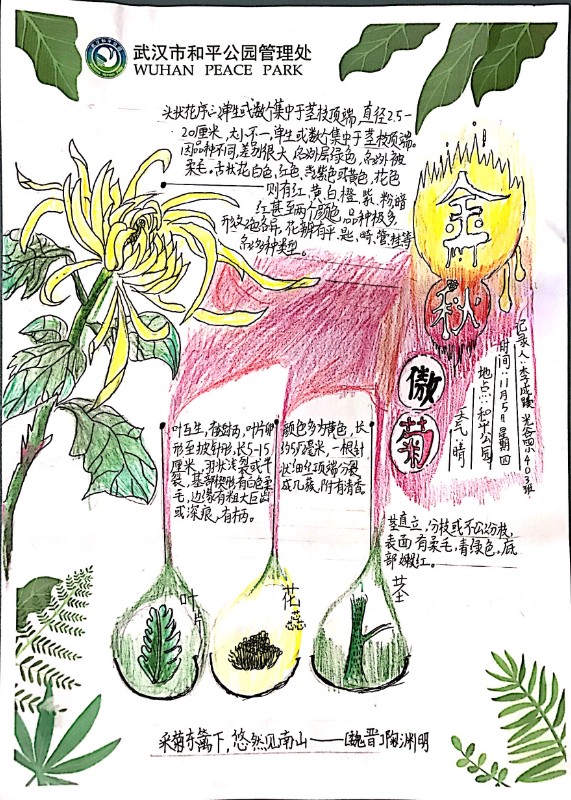 武汉市和平公园管理处
WUHAN PEACE PARK
头状花序:单生或数个集中于茎枝顶端,直径2.5-
20厘米,大小不一,单生或数个集中于茎枝顶端。
因品种不同,差别很大,总苞片层绿色,条外被
柔毛。舌状花白色,红色,紫色或黄色,花色
则有红,黄,白,橙,紫,粉,暗
红甚至两个颜色,品种极多
形状色各异,花瓣有平,匙,畸,管桂等
多种类型。
金
秋
傲
菊
记录人:李
光谷四小403班
时间:11月5日星期四
地点:和平公园
天气:晴
叶互生,有短柄,叶片卵
形至披针形,长5-15
厘米,羽状浅裂或半
裂,基部楔形,有白色柔
毛,边缘有粗大锯齿
或深痕,有柄。
颜色多为黄色,长
厘米,一根针
状细丝顶端分裂
成几簇,附有清香
茎直立,分枝或不分枝,
表面有柔毛,青绿色,底
部嫩红。
叶片
花蕊
茎
采菊东篱下,悠然见南山——[魏晋]陶渊明